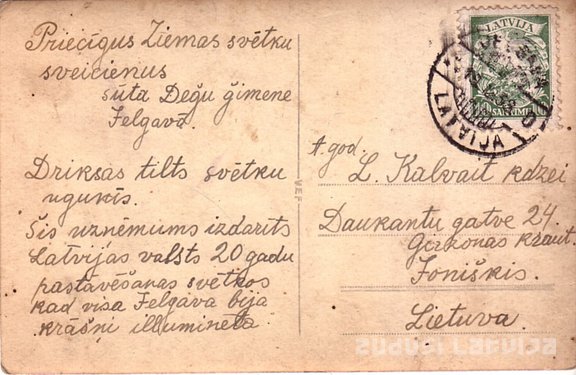 Priecīgus Ziemas svētku
sveicienus
sūta Degu ģimene
Jelgavā.
Driksas tilts svētku
ugunīs.
Šis uzņēmums izdarīts
Latvijas valsts 20 gadu
pastāvēšanas svētkos
kad visa Jelgava bija
krāšņi illuminēta
MEF
LATVIJA
10 SANTIMI 10
LATVIJA
A. god.
L. Kalvait kdzei
Daukantu gatve 24
kraut.
Joniškis.
Lietuva.
zudusi Latvija